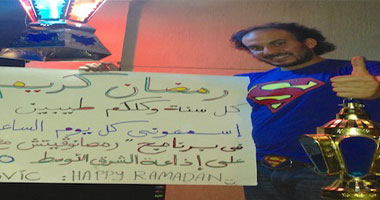 رمضان كريم
كل سنة وكلكم طيبين
إسمعوني كل يوم الساعة
في برنامج "رمضانوفيتش
على إذاعة الشرق الأوسط
OVIC :HAPPY RAMADAN